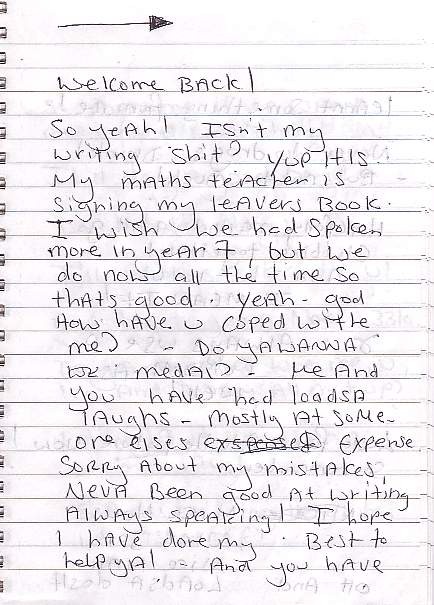 Welcome Back!
So yeah! Isn't my
writing shit? Yup it is
My maths teacher is
signing my leavers Book.
I wish we had spoken
more in year 7, but we
do now all the time so
thats good. Yeah - god
How have u coped with
me? - Do ya wanna
medal? - Me and
you have had loadsa
laughs - mostly at some-
one elses expense
Sorry about my mistakes,
Neva been good at writing
Always speaking! I hope
I have done my Best to
help ya! And you have